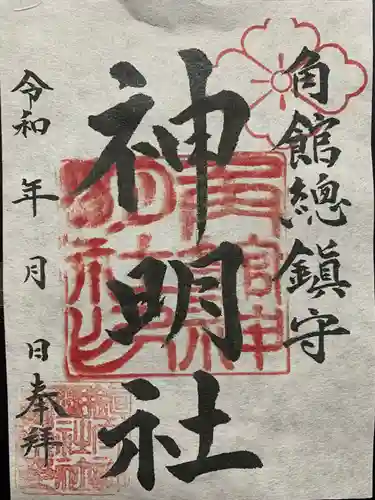 角館總鎮守
神明社
令和 年 月 日 奉拝